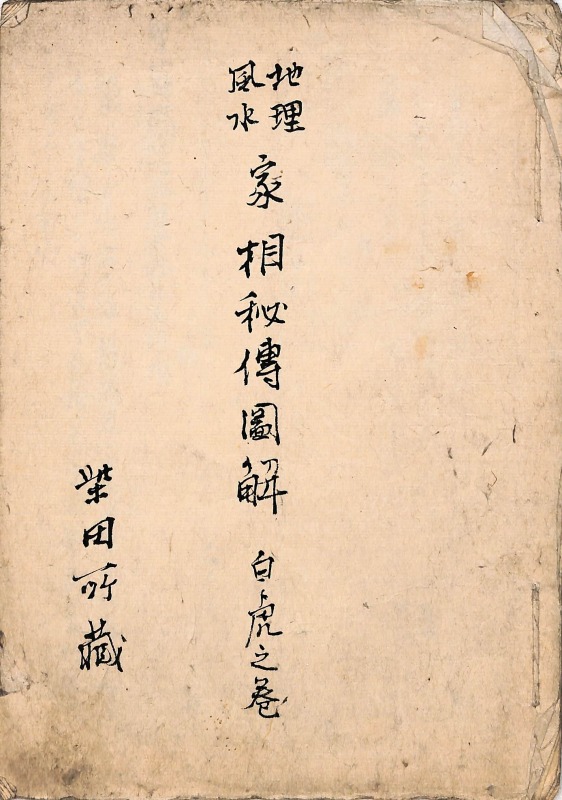 地理
風水
家相秘傳圖解 白虎之巻
柴田所藏